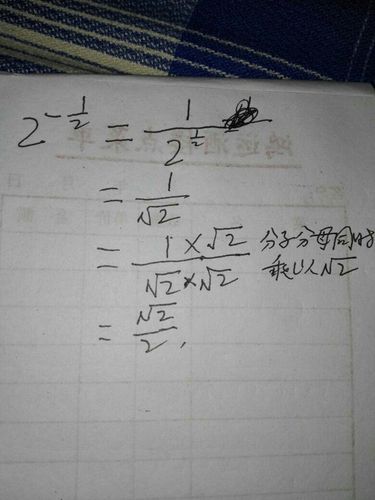 2^{-\frac{1}{2}} = \frac{1}{2^{\frac{1}{2}}}
= \frac{1}{\sqrt{2}}
= \frac{1×\sqrt{2}}{\sqrt{2}×\sqrt{2}} 分子分母同时
乘以\sqrt{2}
= \frac{\sqrt{2}}{2}.